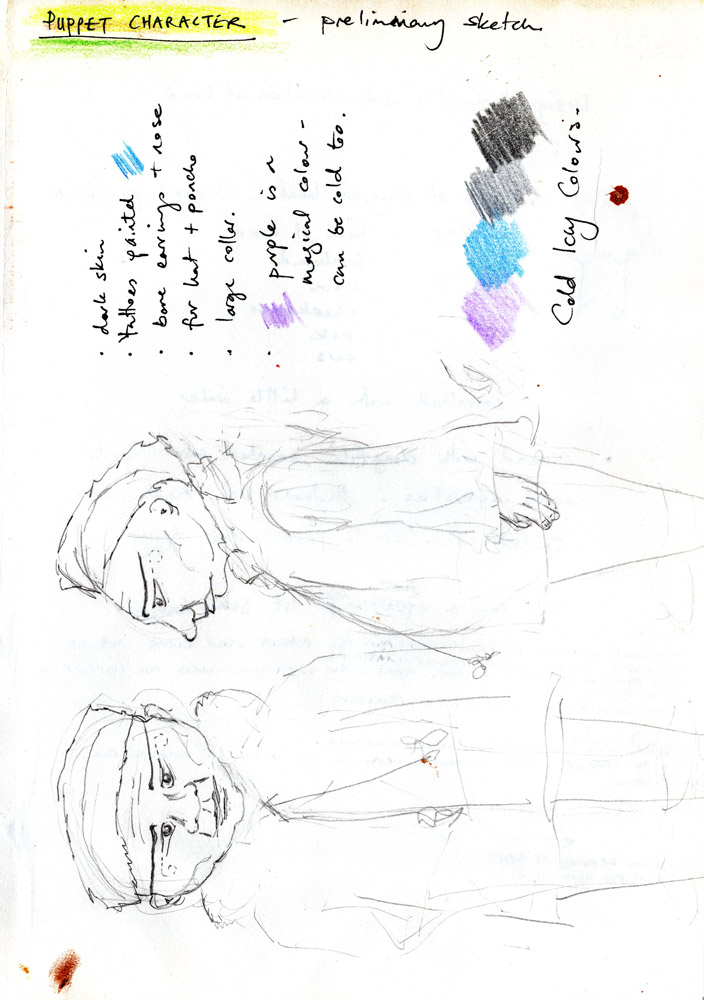 PUPPET CHARACTER – preliminary sketch
· dark skin
· tattoes painted
· bone earrings + nose
· fur hat + poncho
· large collar.
· purple is a
magical colour –
can be cold too.
Cold Icy Colours.